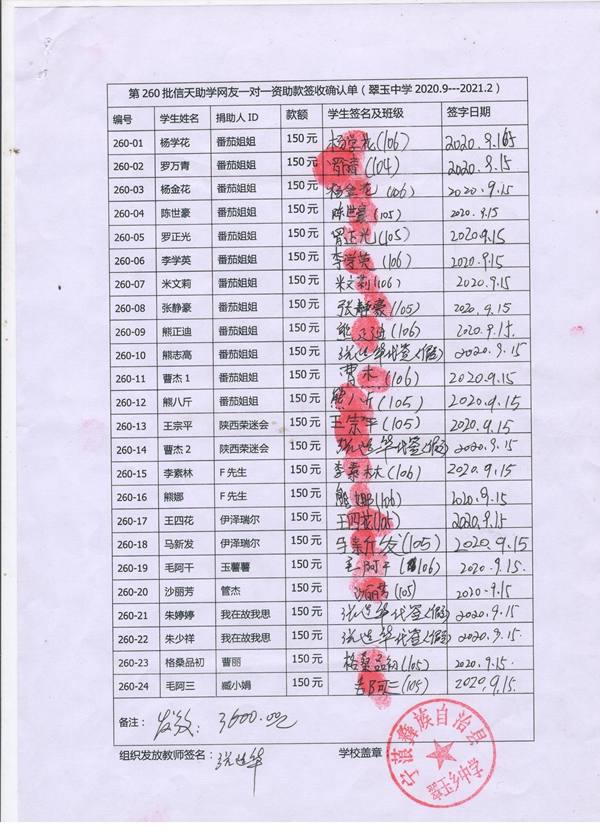 第260批信天助学网友一对一资助款签收确认单（翠玉中学2020.9---2021.2）
编号 学生姓名 捐助人ID 款额 学生签名及班级 签字日期
260-01 杨学花 番茄姐姐 150元 杨学花(106) 2020.9.165
260-02 罗万青 番茄姐姐 150元 (104) 2020.9.15
260-03 杨金花 番茄姐姐 150元 杨金花(106) 2020.9.15
260-04 陈世豪 番茄姐姐 150元 陈世豪(105) 2020.9.15
260-05 罗正光 番茄姐姐 150元 罗正光(105) 2020.9.15
260-06 李学英 番茄姐姐 150元 李学英(106) 2020.9.15
260-07 米文莉 番茄姐姐 150元 米文莉(106) 2020.9.15
260-08 张静豪 番茄姐姐 150元 张静豪(105) 2020.9.15
260-09 熊正迪 番茄姐姐 150元 熊正迪(106) 2020.9.15
260-10 熊志高 番茄姐姐 150元 代签(假) 2020.9.15
260-11 曹杰1 番茄姐姐 150元 曹杰(106) 2020.9.15
260-12 熊八斤 番茄姐姐 150元 熊八斤(105) 2020.9.15
260-13 王宗平 陕西荣迷会 150元 王宗平(105) 2020.9.15
260-14 曹杰2 陕西荣迷会 150元 代签(假) 2020.9.15
260-15 李素林 F先生 150元 李素林(106) 2020.9.15
260-16 熊娜 F先生 150元 熊娜(106) 2020.9.15
260-17 王四花 伊泽瑞尔 150元 王四花(105 2020.9.15
260-18 马新发 伊泽瑞尔 150元 发(105) 2020.9.15
260-19 毛阿干 玉馨馨 150元 毛阿干(106) 2020.9.15
260-20 沙丽芳 管杰 150元 沙丽芳(105) 2020.9.15
260-21 朱婷婷 我在故我思 150元 代签(假) 2020.9.15
260-22 朱少祥 我在故我思 150元 代签(假) 2020.9.15
260-23 格桑品初 曹丽 150元 格桑品初(105) 2020.9.15
260-24 毛阿三 臧小娟 150元 毛阿三(105) 2020.9.15.
备注： 发放：3600.00元
组织发放教师签名： 学校盖章：
宁蒗彝族自治县